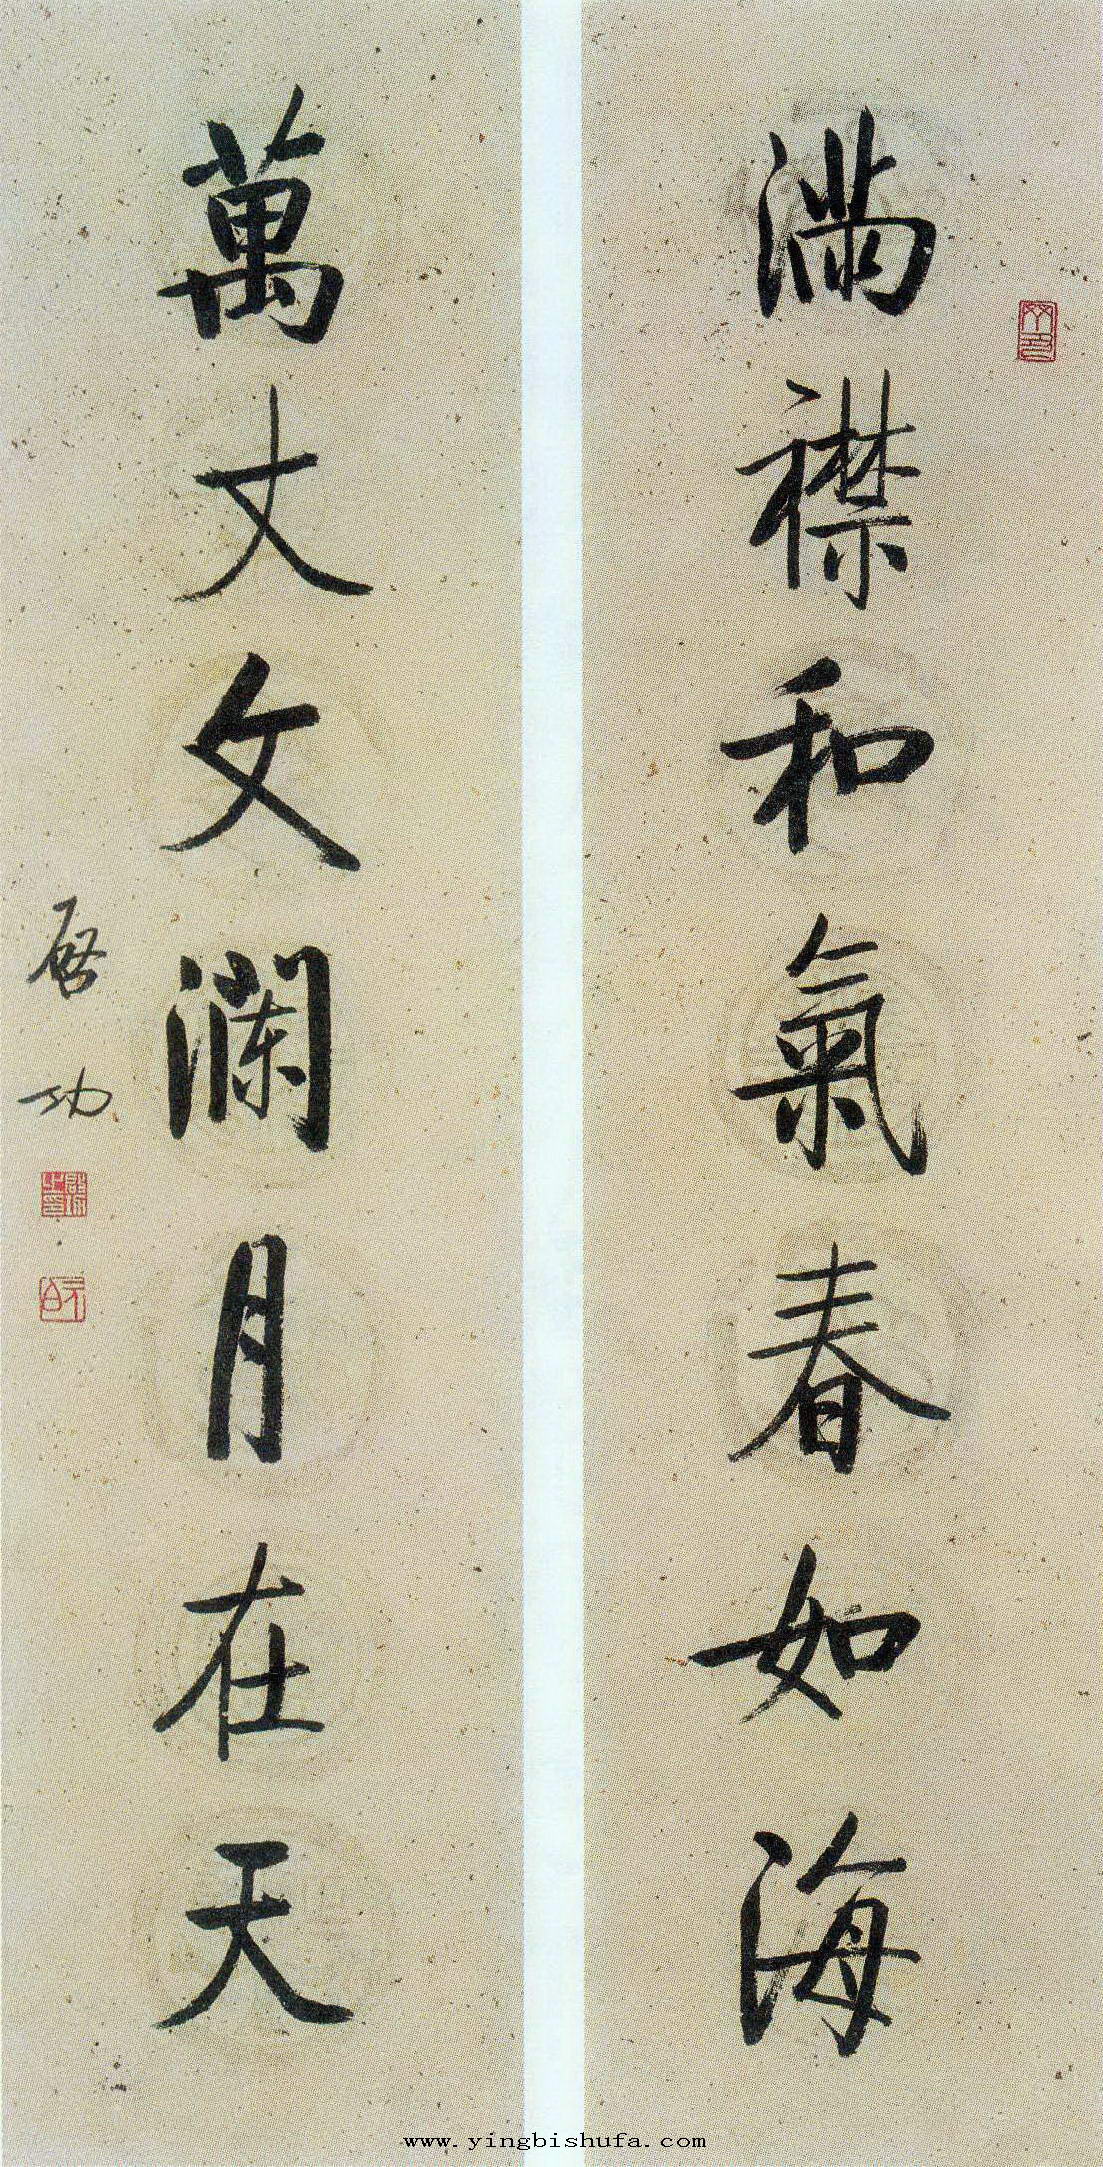 滿襟和氣春如海
萬丈文瀾月在天
啓功
www.yingbishufa.com